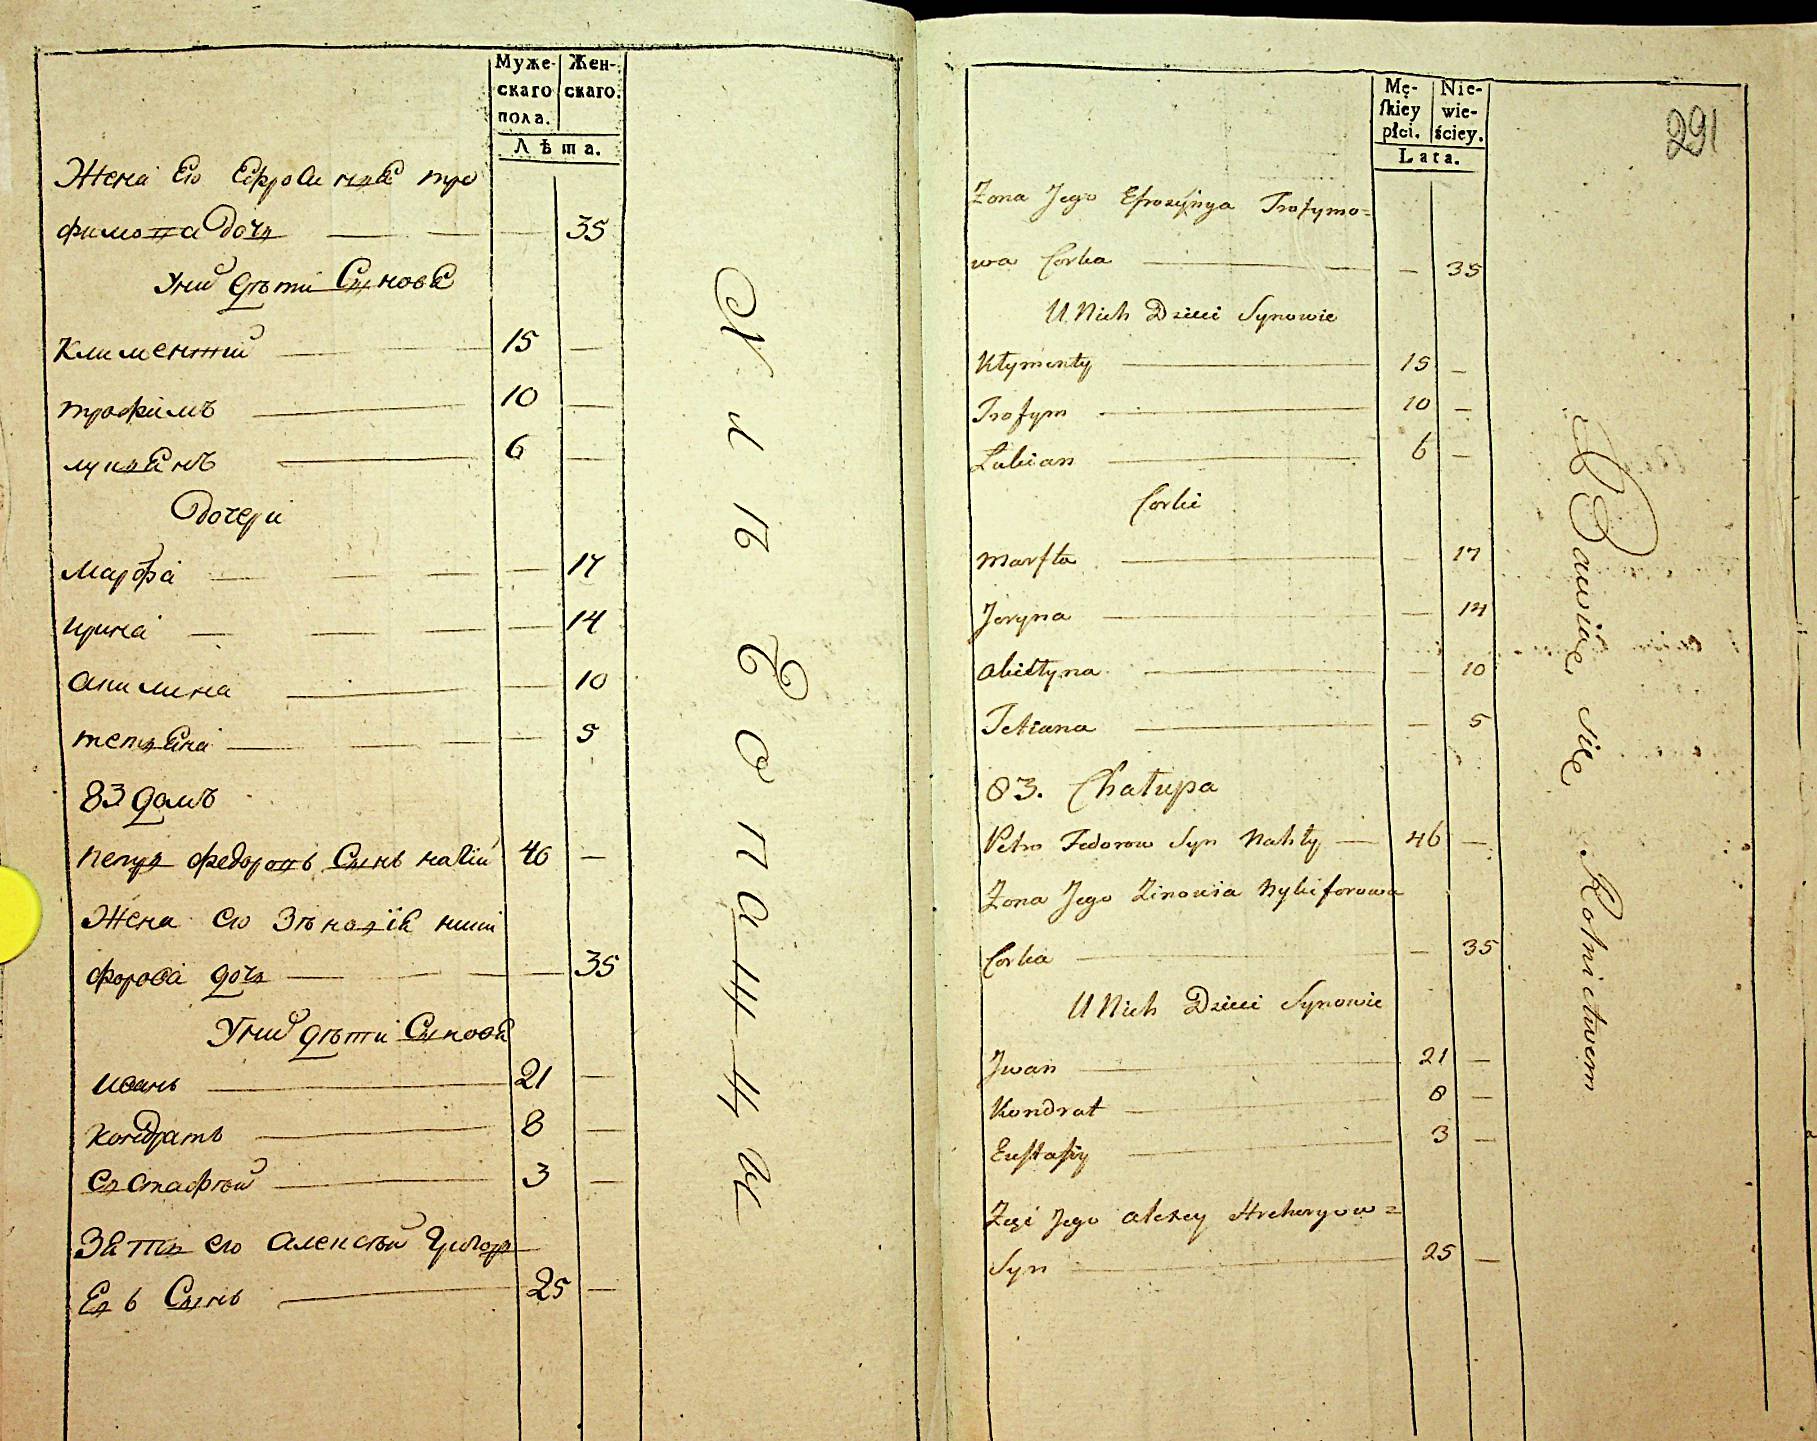 Муже-
скаго
пола.
Жен-
скаго.
Лѣта.
Жена Его Ефросинія тро
фимова дочь 35
Уних дѣти Синове
Климентий 15
трофимъ 10
лукианъ 6
дочери
Марфа 17
ирина 14
акилина 10
тетяна 5
83 домъ
Петр федоровъ Синъ 46
Жена его Зѣновія ники
форова дочь 35
Уних дѣти Синове
иванъ 21
кондратъ 8
Естафѣй 3
Зять его алексѣй Григор
Евъ Синъ 25
291
Mę-
ſkiey
płci.
Nie-
wie-
ściey.
Lata.
Żona Jego Efrozynya Trofymo=
wa Corka 35
U Nich Dzieci Synowie
Kłymenty 15
Trofym 10
Lukian 6
Corki
Marfta 17
Jeryna 14
Akiełyna 10
Tetiana 5
83. Chałupa
Petro Fedorow Syn Nahły 46
Żona Jego Zinowia Nykiforowa
Corka 35
U Nich Dzieci Synowie
Jwan 21
Kondrat 8
Euſtafiy 3
Zęć Jego Alexey Hrehoryow=
Syn 25
Bawiące się Rolnictwem